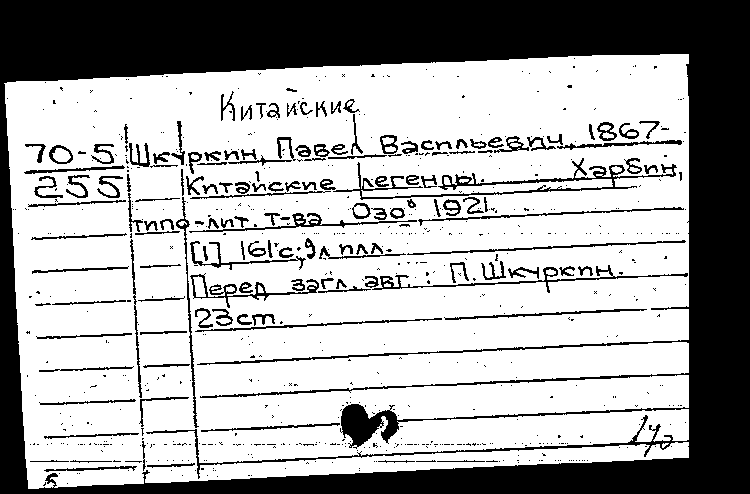 Китайские
70-5 Шкуркин, Павел Васильевич, 1867-
255 Китайские легенды. Харбин,
типо-лит. т-ва "Озо", 1921.
[1], 161 с., 9л илл.
Перед загл. авт.: П. Шкуркин.
23cm.